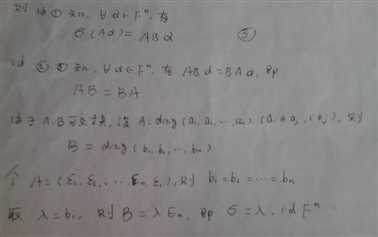 则由①知, ∀α∈Fⁿ, 有
σ(Aα)=ABα ③
由②③知, ∀α∈Fⁿ, 有 ABα=BAα, 即
AB=BA
由于A、B可交换, 设 A=diag(a₁, a₂, …, aₙ) (aᵢ≠aⱼ, i≠j), 则
B=diag(b₁, b₂, …, bₙ)
令 A=(ε₂, ε₃, …, εₙ, ε₁), 则 b₁=b₂=…=bₙ
取 λ=b₁, 则 B=λEₙ, 即 σ=λ·idFⁿ